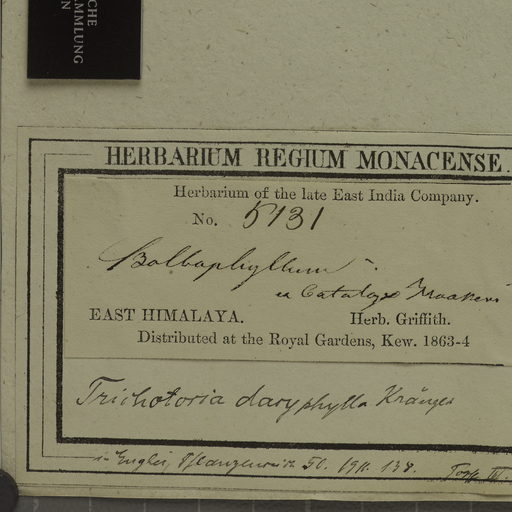 CHE
AMMLUNG
N
HERBARIUM REGIUM MONACENSE.
Herbarium of the late East India Company.
No. 5131
Bolbophyllum
ex Catalogo
EAST HIMALAYA. Herb. Griffith.
Distributed at the Royal Gardens, Kew. 1863-4
Trichotosia dasyphylla Kränzl
in Engler, Pflanzenreich 50. 1911. 138.